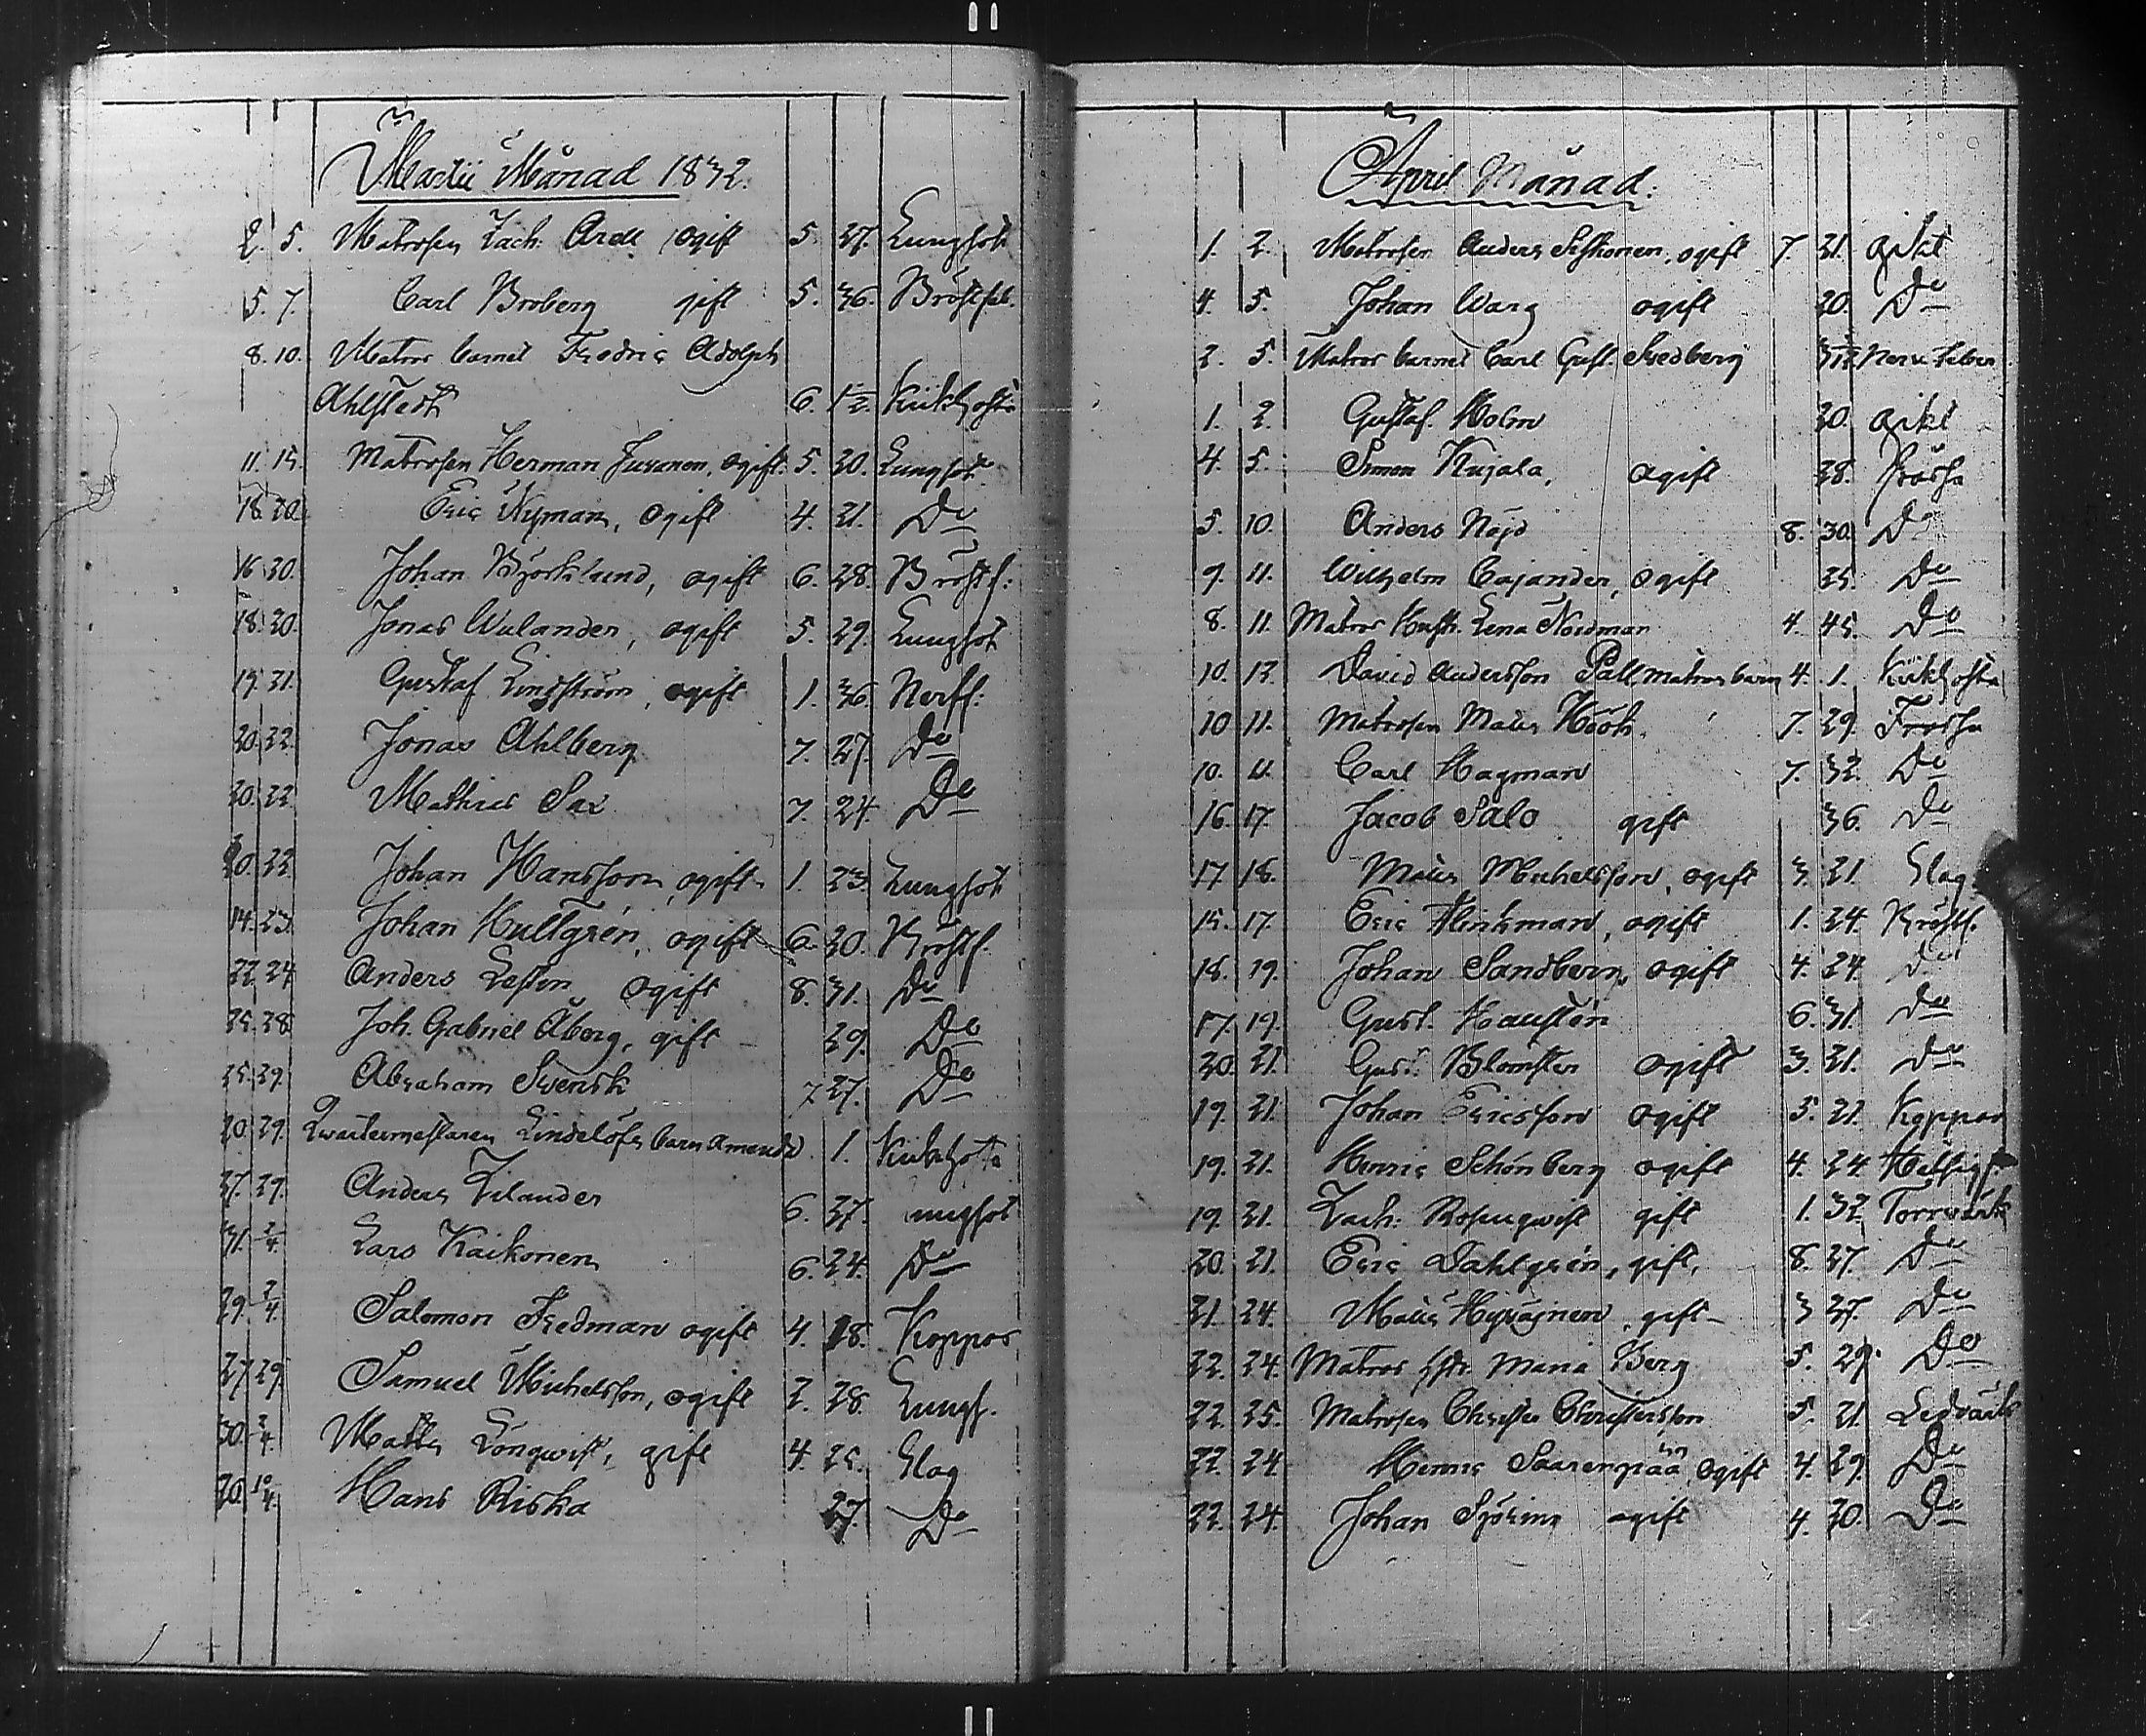 Martii Månad 1832.
2. 5. Matrosen Zach: Arde ogift 5. 27. Lungsot
5. 7. Carl Broberg gift 5. 36. Bröstfeb.
8. 10. Matros barnet Fredric Adolph
Ahlstedt 6. 1/2 Kikhosta
11. 15. Matrosen Herman Jusanen, ogift 5. 20. Lungsot
18. 20. Eric Nyman, ogift 4. 21. Do
16 20. Johan Björklund, ogift 6. 28. Bröstf:
18. 20. Jonas Wulander, ogift 5. 29. Lungsot
19. 21. Gustaf Lindström, ogift 1. 36. Nerff:
20. 22. Jonas Ahlberg 7. 27. Do
20. 22. Mathias Sax 7. 24. Do
20. 22. Johan Hansson, ogift 1. 23. Lungsot
14. 23. Johan Hultgrén, ogift 6. 20. Bröstf.
22. 24 Anders ogift 8. 31. Do
25. 28. Joh. Gabriel Åberg, gift 29. Do
25. 29. Abraham Svensk 7 27. Do
20. 29. Qwartermästaren Lindelöfs barn Amanda 1. Kikhosta
27. 29. Anders Zilander 6. 27. ungsot
31. 2/4. Lars Kaikonen 6. 24. Do
29. 2/4. Salomon Fredman ogift 4. 18. Koppor
27 29. Samuel Michelsson, ogift 2. 28. Lungs.
30. 2/4. Matts Lönqwist, gift 4. 25. Slag
20. 10/4. Hans Riska 27. Do
April Månad.
1. 2. Matrosen Anders ogift 7. 21. gikt
4. 5. Johan Warg ogift 20. Do
2. 5. Matros barnet Carl Gust. Svedberg 3/12 Nerv feber
1. 2. Gustaf Holm 20. gikt
4. 5. Simon Kujala, ogift 28. Frossa
5. 10. Anders Nöjd 8. 30. Do
9. 11. Wilhelm Cajander, ogift 25. Do
8. 11. Matros Hustr. Lena Nordman 4. 45. Do
10. 12. David Andersson Pall matros barn 4. 1. Kikhosta
10 11. Matrosen Mats Höök 7. 29. Frossa
10. 11. Carl Hagman 7. 32. Do
16. 17. Jacob Salo gift 36. Do
17 18. Mats Michelsson, ogift 3. 21. Slag
15. 17. Eric Klinkman, ogift 1. 24. Bröstf.
18. 19. Johan Sandberg, ogift 4. 24. Do
17. 19. Gust. Hausten 6. 31. Do
20. 21. Gust. Blomster ogift 3. 21. Do
19. 21. Johan Ericsson ogift 5. 21. Koppor
19. 21. Henric Schönberg ogift 4. 24 Hetsigf
19. 21. Zach: Rosenqwist gift 1. 32. Torrwärk
20. 21. Eric Dahlgrén, gift, 8. 27. Do
21. 24. Mats gift 3 27. Do
22. 24. Matros Hstr. Maria Berg 5. 29. Do
22. 25. Matrosen Christer Christersson 5. 21. Ledvärk
22. 24 Henric Saarenpää ogift 4. 29. Do
22. 24. Johan Sjöring ogift 4. 20. Do